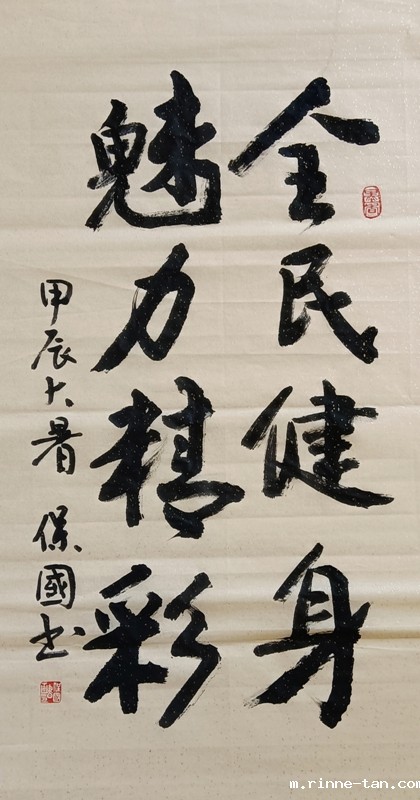 全民健身
魅力精彩
甲辰大暑 保國书
m.rinne-tan.com